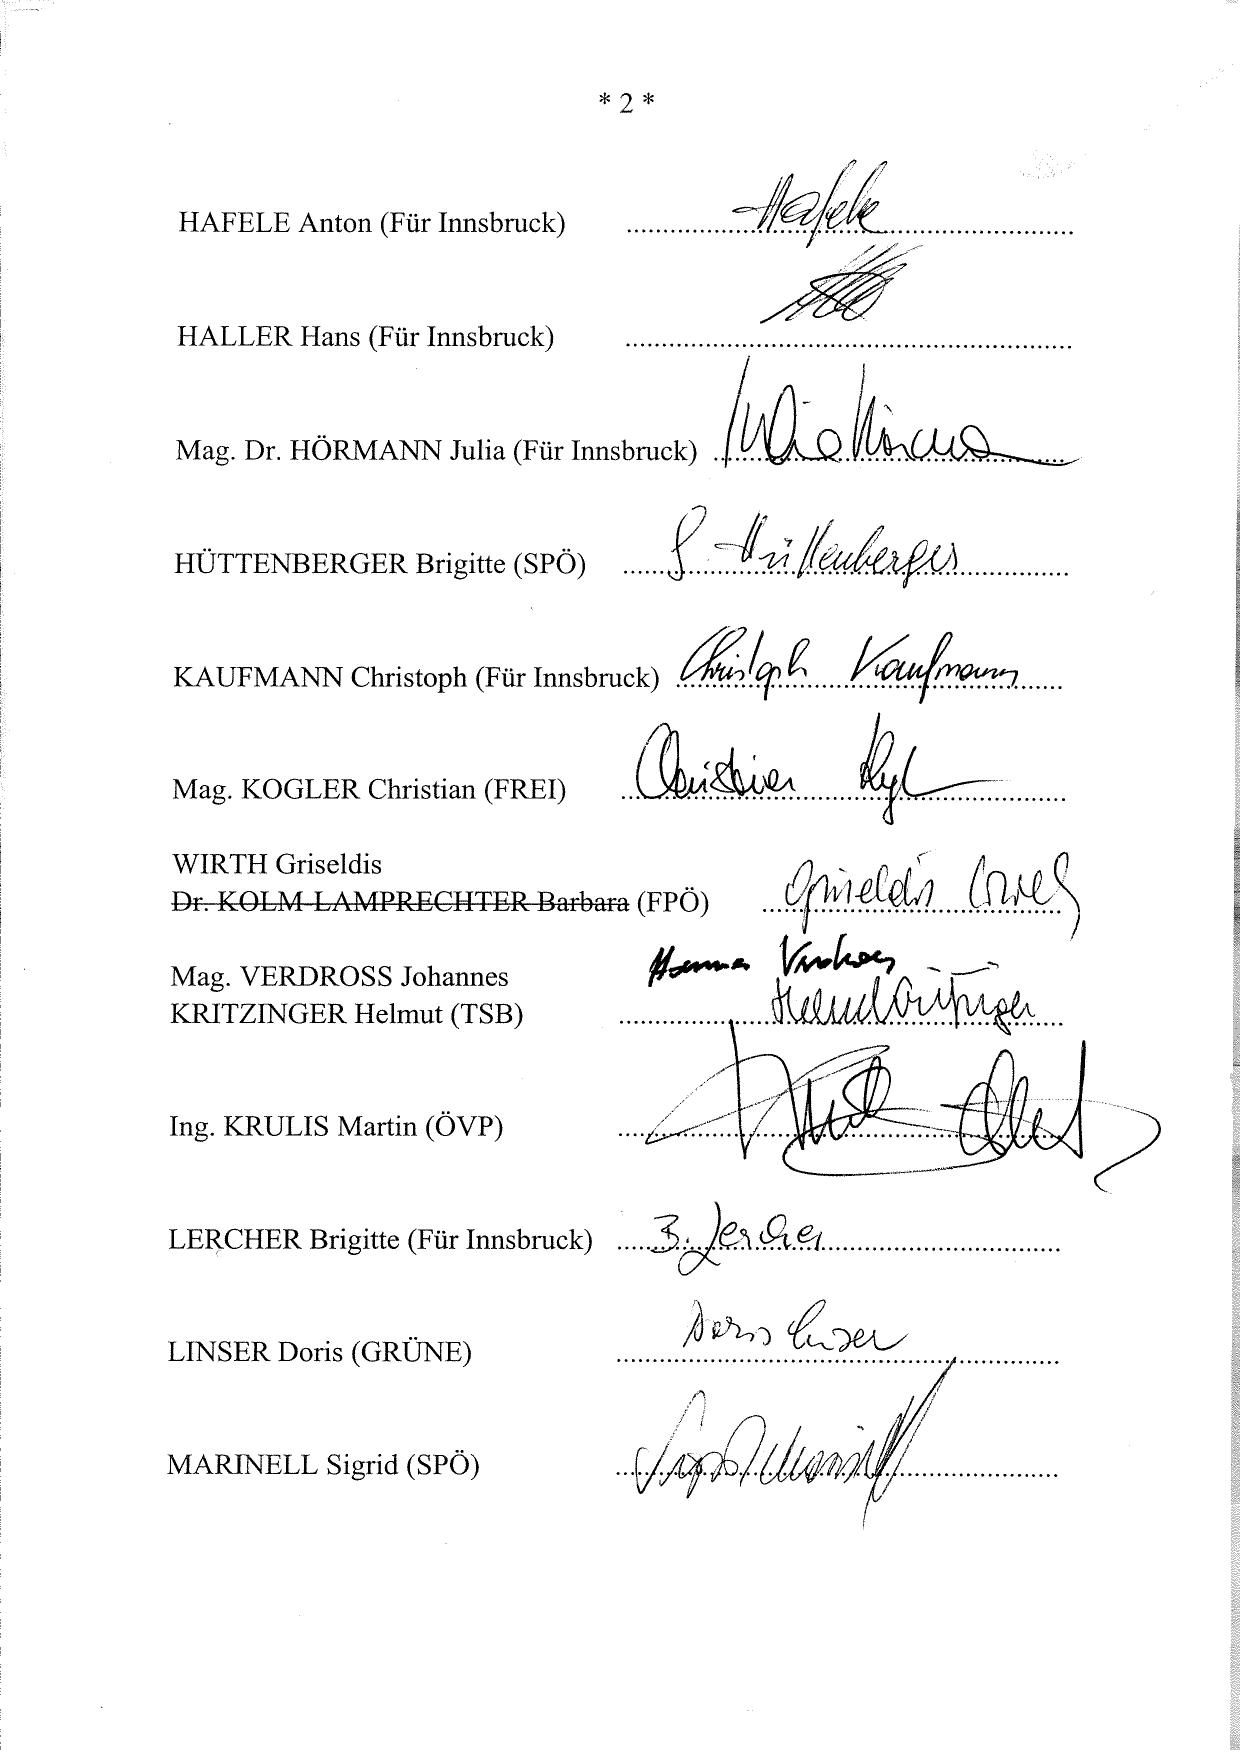 * 2 *
HAFELE Anton (Für Innsbruck) Hafele
HALLER Hans (Für Innsbruck)
Mag. Dr. HÖRMANN Julia (Für Innsbruck) Julia Hörmann
HÜTTENBERGER Brigitte (SPÖ) Hüttenberger
KAUFMANN Christoph (Für Innsbruck) Christoph Kaufmann
Mag. KOGLER Christian (FREI) Christian
WIRTH Griseldis
Dr. KOLM-LAMPRECHTER Barbara (FPÖ) Griseldis
Mag. VERDROSS Johannes
KRITZINGER Helmut (TSB) Helmut Kritzinger
Ing. KRULIS Martin (ÖVP)
LERCHER Brigitte (Für Innsbruck) B. Lercher
LINSER Doris (GRÜNE) Doris Linser
MARINELL Sigrid (SPÖ)